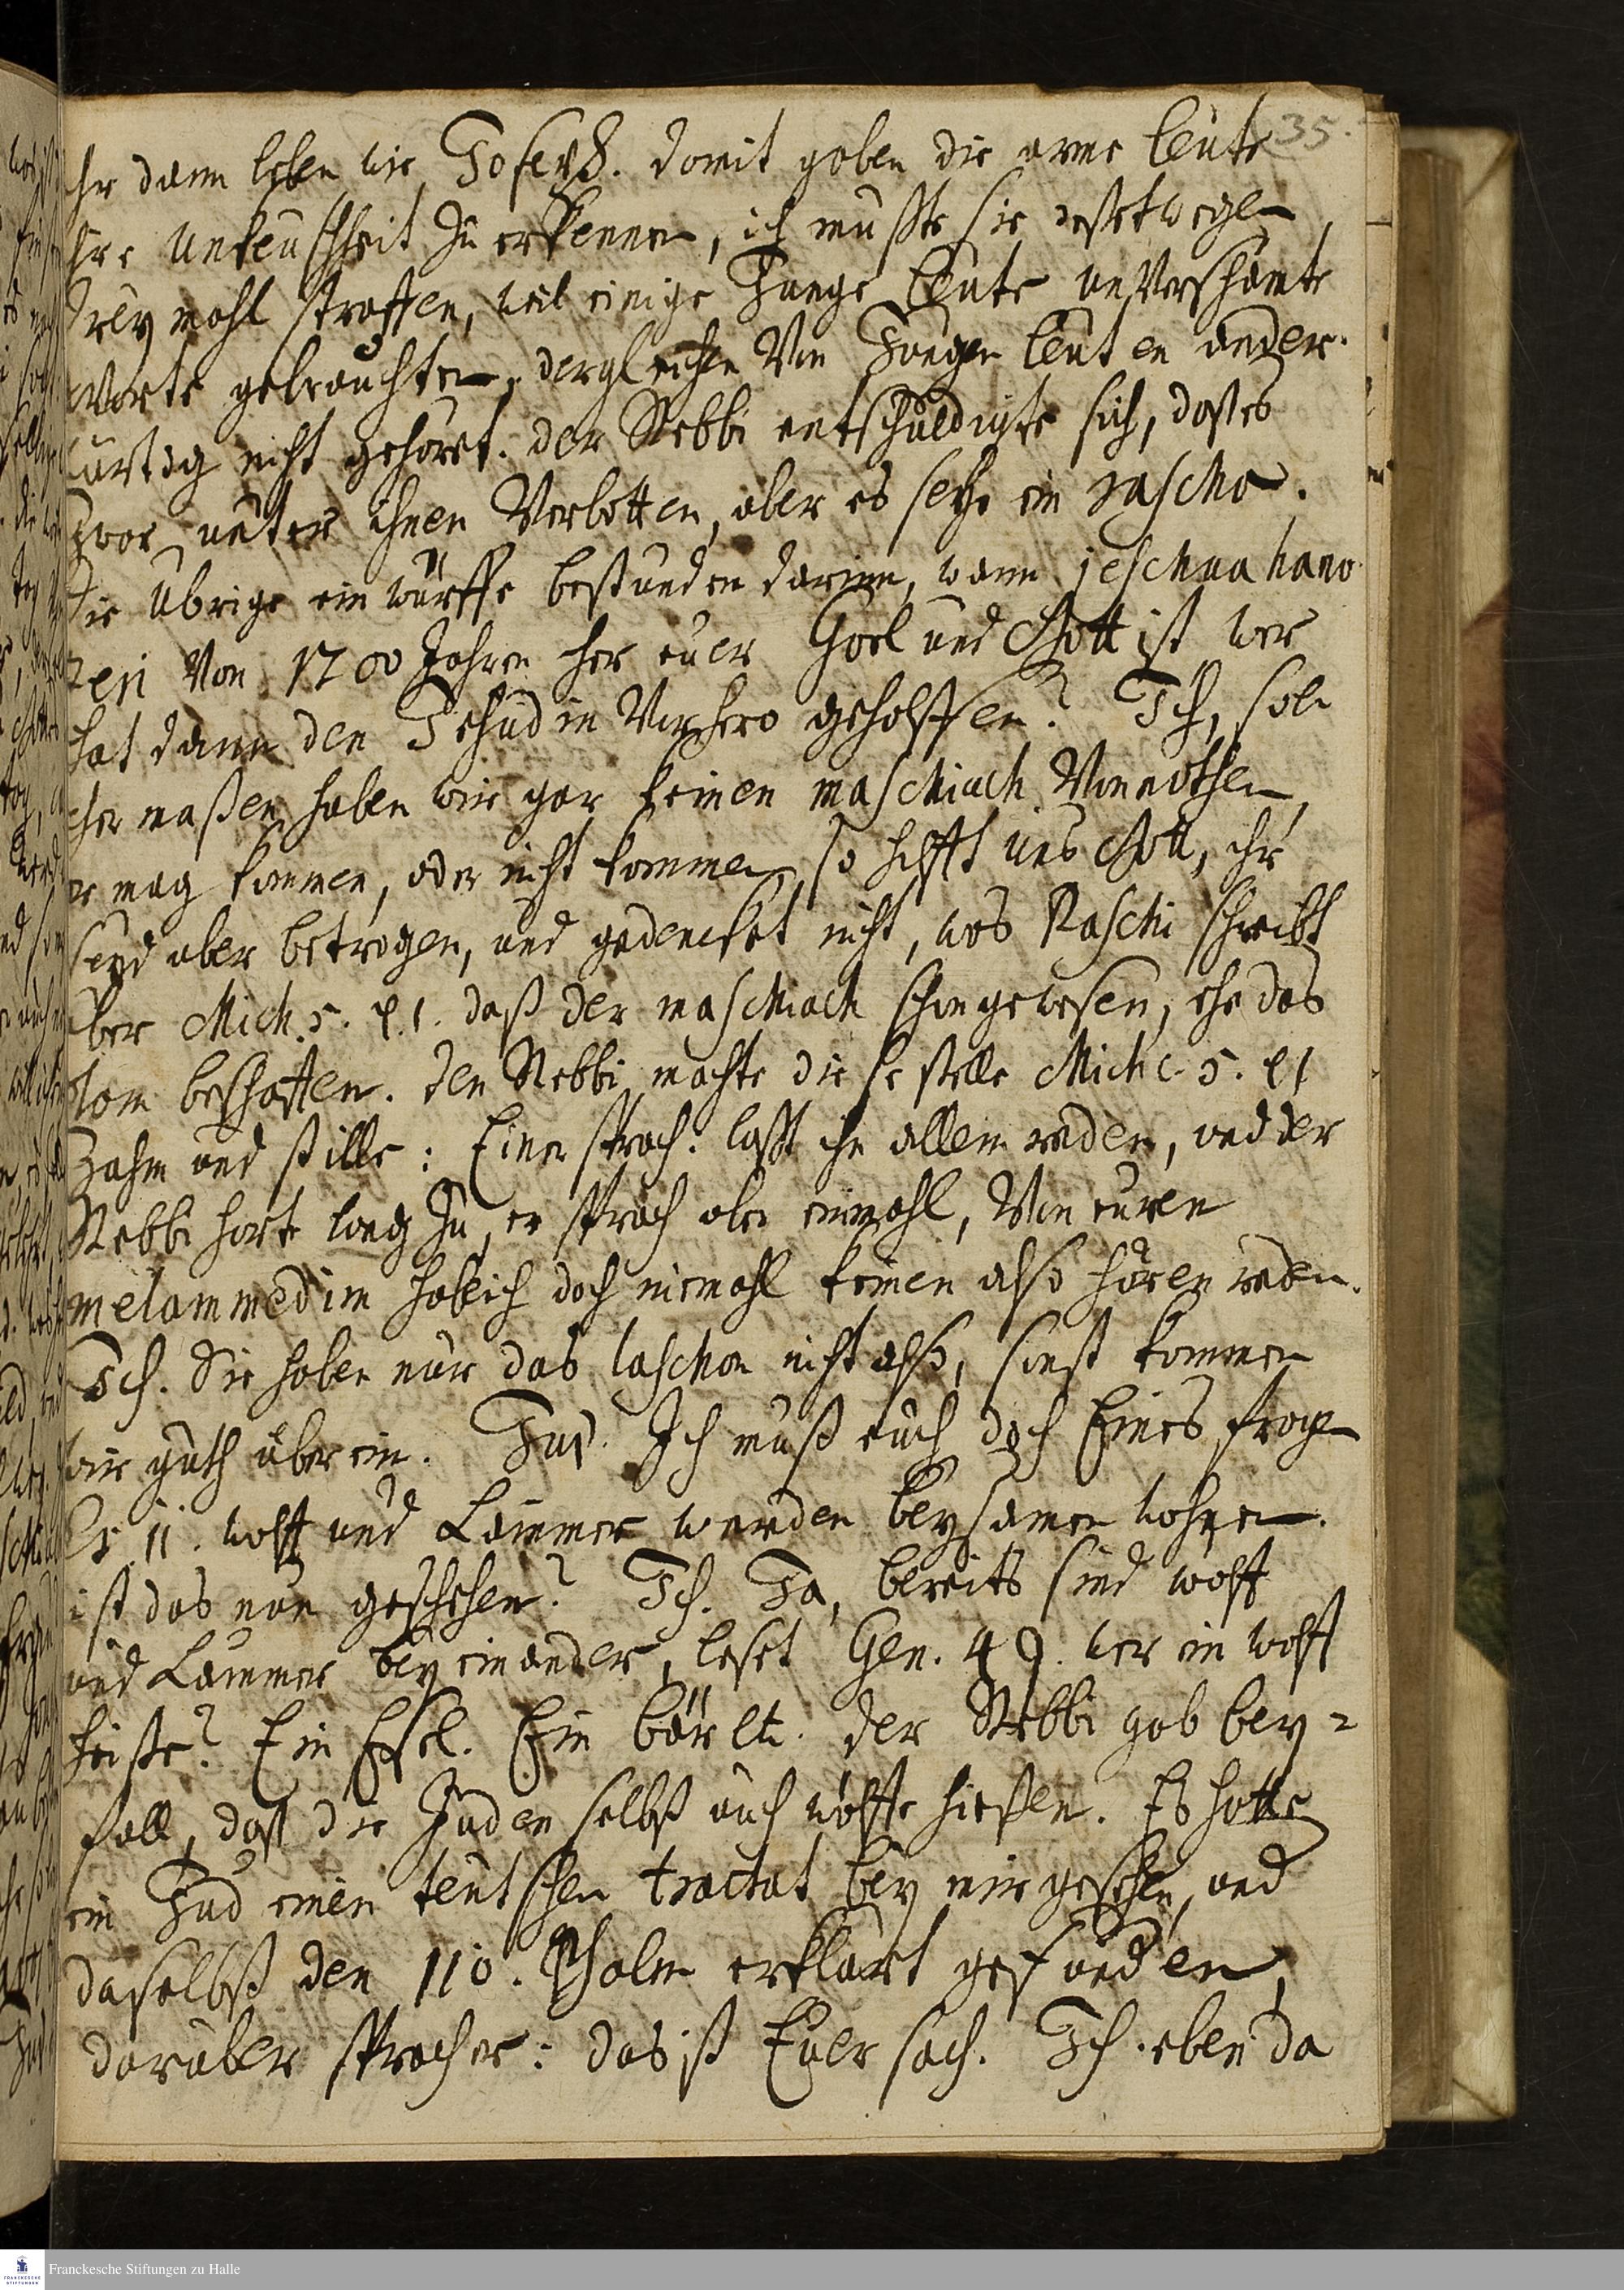 35.
ihr dann leben wie Joseph. damit gaben die arme leute
ihre Unkeuschheit zu erkennen, ich muste sie destwegen
drey mahl straffen, weil einige Junge leute unverschämte
Worte gebrauchten, dergleichen von Jungen leuten ander-
wärtig nicht gehöret. der Rebbi entschuldigte sich, daß es
zwar unter ihnen Verbotten, aber es seye ein rascha.
Die übrige einwürffe bestunden darinn, wann jeschua hano-
zeri von 1700 Jahren her euer Goel und Gott ist, wer
hat dann den Jehudim vorhero geholffen? Ich, sol-
cher maßen haben wir gar keinen maschiach vonnöthen,
er mag kommen, oder nicht kommen, so hilfft uns Gott, ihr
seyd aber betrogen, und gedencket nicht, was Raschi schreibt
über Mich. 5. v. 1. daß der maschiach schon gewesen, ehe das
olam beschaffen. den Rebbi machte diese stelle Mich c. 5. v 1
zahm und stille: Einer sprach: laßt ihn allein reden, und der
Rebbi hört lang zu, er sprach aber einmahl, Von euren
melammedim hab ich doch niemahl keinen also hören reden.
Ich. Sie haben nur das laschon nicht also, sonst kommen
wir guth überein. Jud. Ich muß euch doch Eines fragen
Es. 11. wolff und Lämmer werden beysamen wohnen.
ist das nun geschehen? Ich. Ja, bereits sind wölff
und Lämmer bey einander, leset Gen. 49. wer ein wolff
heiße? Ein Esel. Ein bär etc. der Rebbi gab bey-
fall, daß die Juden selbst auch wölffe hießen. Es hatte
ein Jud einen teutschen tractat bey mir gesehen, und
daselbst den 110. Psalm erklärt gefunden,
darüber sprach er: das ist Euer sach. Ich. eben da
Franckesche Stiftungen zu Halle